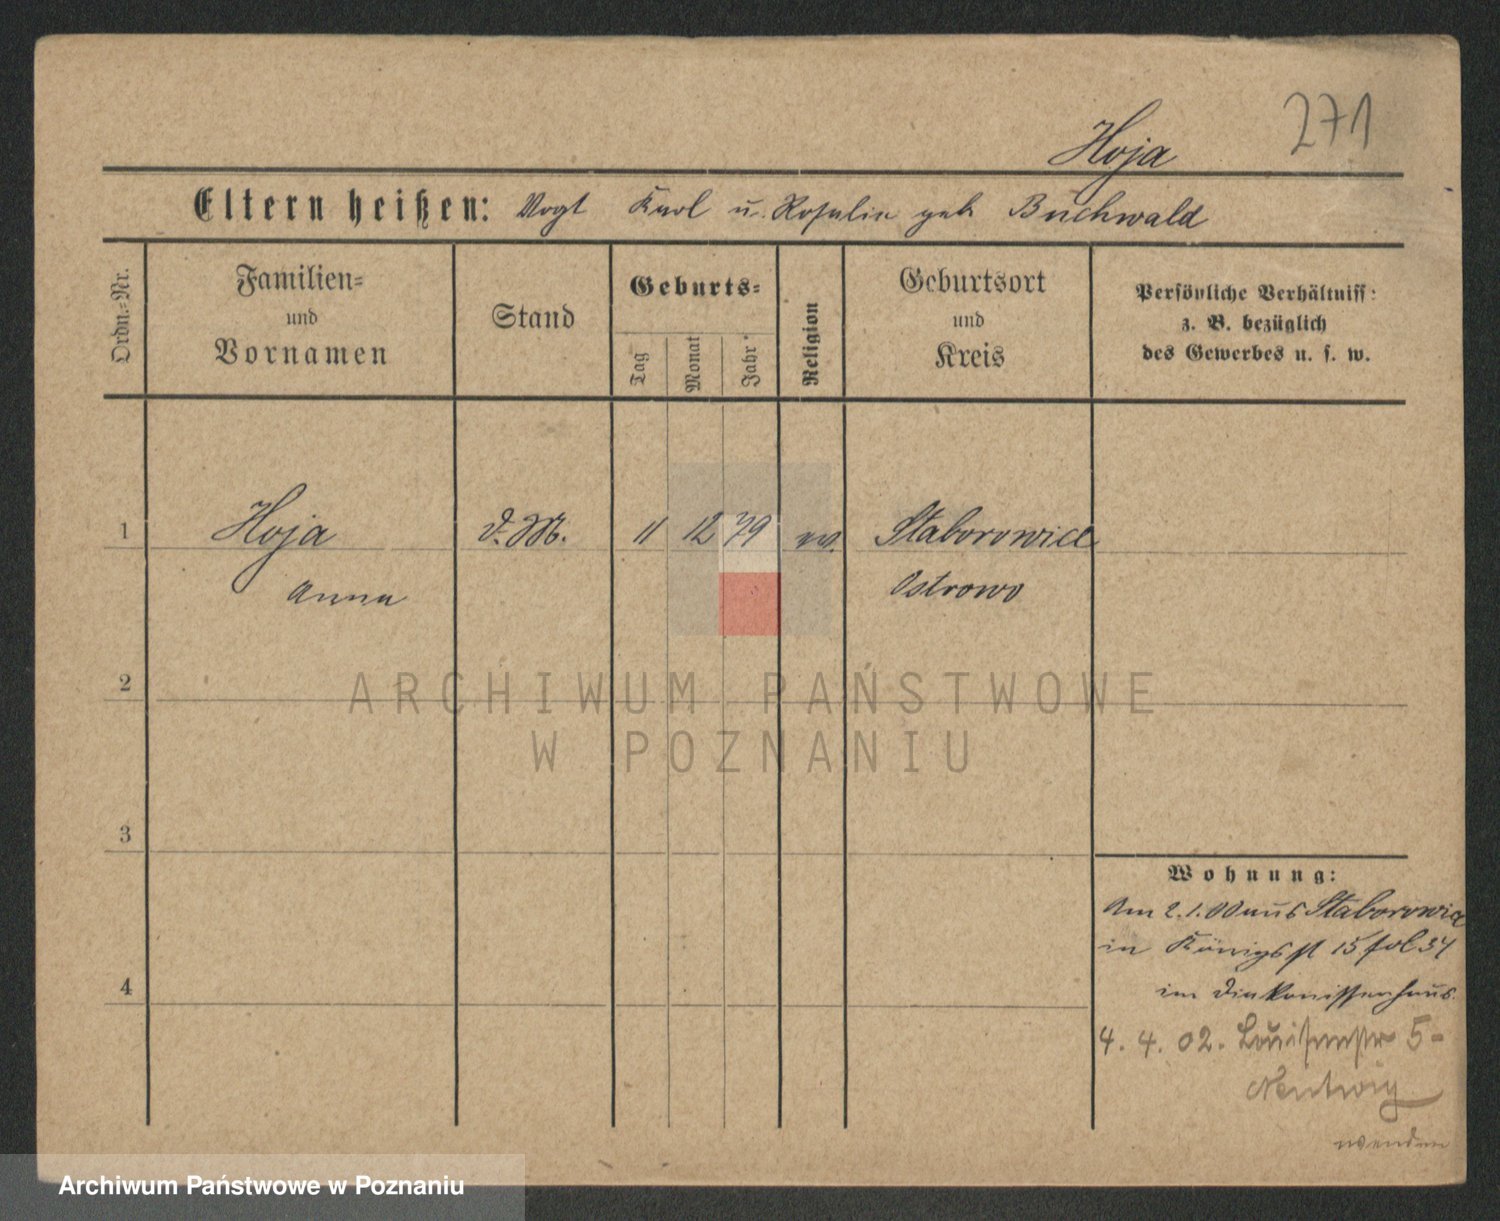 271
Hoja
Eltern heißen: Vogt Karl u. Rosalie geb Buchwald
Ordn.=Nr.
Familien=
und
Vornamen
Stand
Geburts=
Tag
Monat
Jahr
Religion
Geburtsort
und
Kreis
Persönliche Verhältniss:
z. B. bezüglich
des Gewerbes u. s. w.
1 Hoja D. M. 11 12 79 ev. Staborowice
Anna Ostrowo
2
3
4
Wohnung:
Am 2.1.00 aus Staborowice
in Königsst 15 fol 34
im Diakonissenhaus.
4. 4. 02. Louisenstr 5-
Nentwig
wenden
ARCHIWUM PAŃSTWOWE
W POZNANIU
Archiwum Państwowe w Poznaniu